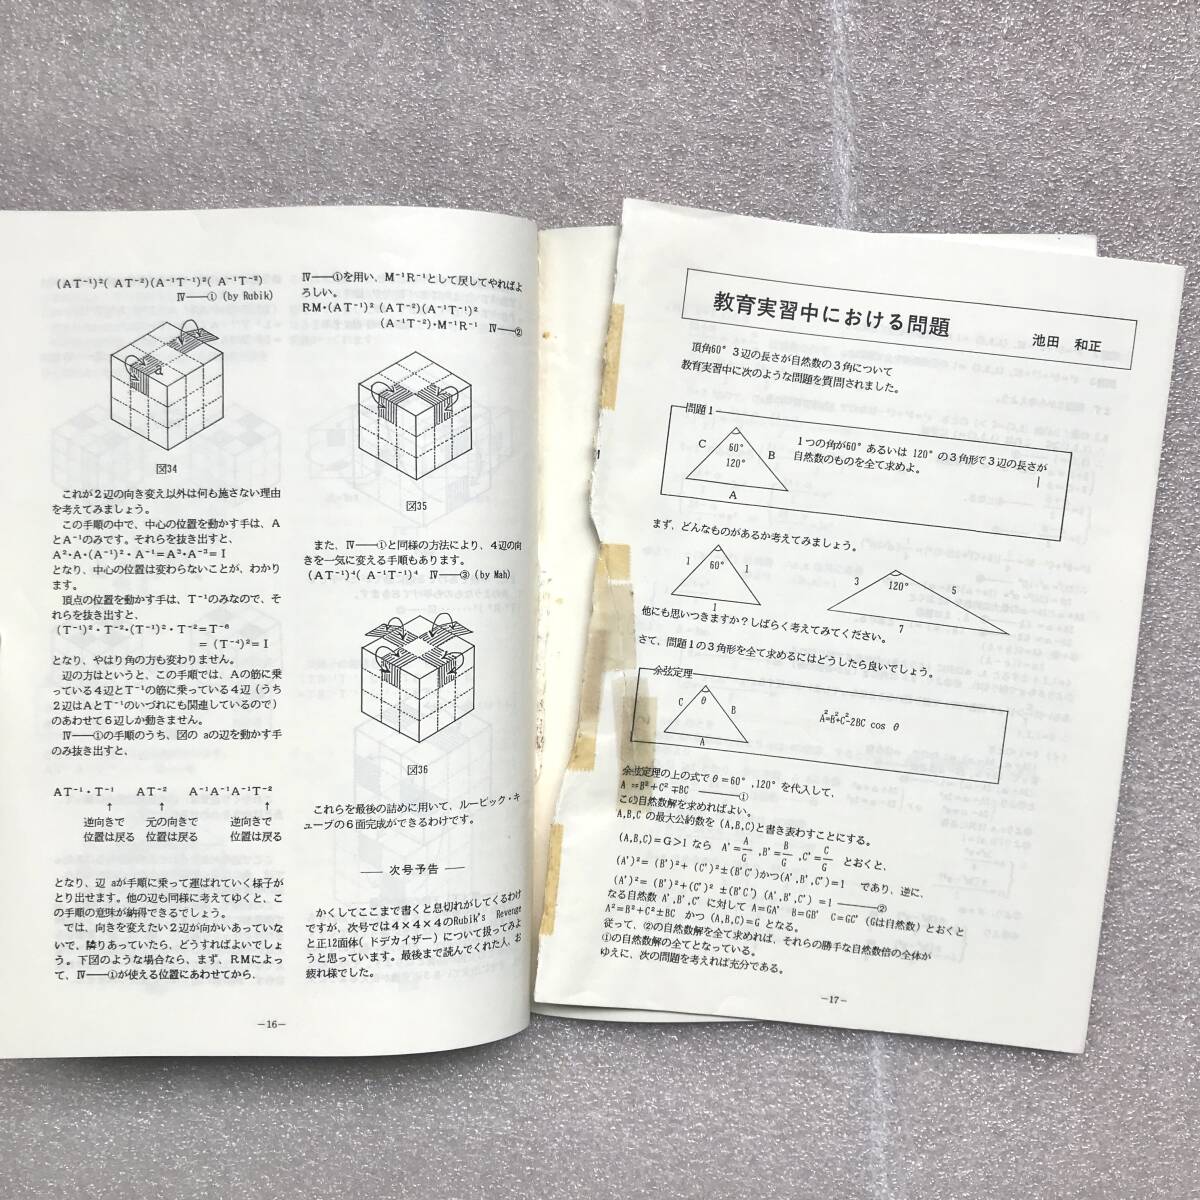 (AT⁻¹)²( AT⁻²)(A⁻¹T⁻¹)²( A⁻¹T⁻²)
Ⅳ——① (by Rubik)
a
a
図34
これが2辺の向き変え以外は何も施さない理由
を考えてみましょう。
この手順の中で、中心の位置を動かす手は、A
とA⁻¹のみです。それらを抜き出すと、
A²・A・(A⁻¹)²・A⁻¹=A³・A⁻³=I
となり、中心の位置は変わらないことが、わかり
ます。
頂点の位置を動かす手は、T⁻¹のみなので、そ
れらを抜き出すと、
(T⁻¹)²・T⁻²・(T⁻¹)²・T⁻²=T⁻⁸
= (T⁻⁴)²=I
となり、やはり角の方も変わりません。
辺の方はというと、この手順では、Aの筋に乗
っている4辺とT⁻¹の筋に乗っている4辺(うち
2辺はAとT⁻¹のいづれにも関連しているので)
のあわせて6辺しか動きません。
Ⅳ——①の手順のうち、図の aの辺を動かす手
のみ抜き出すと、
AT⁻¹・T⁻¹ AT⁻² A⁻¹A⁻¹A⁻¹T⁻²
↑ ↑ ↑
逆向きで 元の向きで 逆向きで
位置は戻る 位置は戻る 位置は戻る
となり、辺 aが手順に乗って運ばれていく様子が
とり出せます。他の辺も同様に考えてゆくと、こ
の手順の意味が納得できるでしょう。
では、向きを変えたい2辺が向かいあっていな
いで、隣りあっていたら、どうすればよいでしょ
う。下図のような場合なら、まず、RMによっ
て、Ⅳ——①が使える位置にあわせてから、
—16—
Ⅳ——①を用い、M⁻¹R⁻¹として戻してやればよ
ろしい。
RM・(AT⁻¹)² (AT⁻²)(A⁻¹T⁻¹)²
(A⁻¹T⁻²)・M⁻¹R⁻¹ Ⅳ——②
図35
また、Ⅳ——①と同様の方法により、4辺の向
きを一気に変える手順もあります。
(AT⁻¹)⁴( A⁻¹T⁻¹)⁴ Ⅳ——③ (by Mah)
図36
これらを最後の詰めに用いて、ルービック・キ
ューブの6面完成ができるわけです。
—— 次号予告 ——
かくしてここまで書くと息切れがしてくるわけ
ですが、次号では4×4×4のRubik's Revenge
と正12面体(ドデカイザー)について扱ってみよ
うと思っています。最後まで読んでくれた人、お
疲れ様でした。
教育実習中における問題
池田 和正
頂角60° 3辺の長さが自然数の3角について
教育実習中に次のような問題を質問されました。
問題1
C
60°
120°
B
A
1つの角が60° あるいは 120° の3角形で3辺の長さが
自然数のものを全て求めよ。
まず、どんなものがあるか考えてみましょう。
1
60°
1
1
3
120°
5
7
他にも思いつきますか?しばらく考えてみてください。
さて、問題1の3角形を全て求めるにはどうしたら良いでしょう。
余弦定理
C
θ
B
A
A²=B²+C²-2BC cos θ
余弦定理の上の式でθ=60°,120°を代入して、
A²=B²+C²∓BC ———①
この自然数解を求めればよい。
A,B,C の最大公約数を (A,B,C)と書き表わすことにする。
(A,B,C)=G>1 なら A'=A/G ,B'=B/G ,C'=C/G とおくと、
(A')²= (B')²+ (C')²±(B'C')かつ(A',B',C')=1 であり、逆に、
(A')²= (B')²+(C')² ±(B'C') (A',B',C') =1 ———②
なる自然数 A',B',C' に対して A=GA' B=GB' C=GC' (Gは自然数)とおくと
A²=B²+C²±BC かつ (A,B,C)=G となる。
従って、②の自然数解を全て求めれば、それらの勝手な自然数倍の全体が
①の自然数解の全てとなっている。
ゆえに、次の問題を考えれば充分である。
—17—